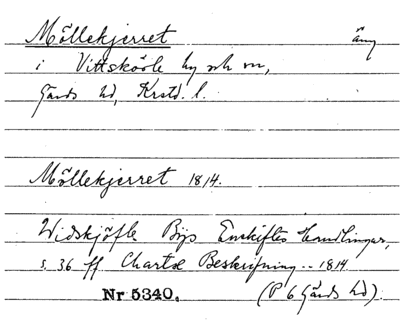 Möllekjerret äng
i Vittskövle by och sn,
Gärds hd, Krstd. l.
Möllekjerret 1814.
Widskjöfle Bys Enskiftes Handlingar,
s. 36 ff Chartæ Beskrifning -- 1814
Nr 5340. (P 6 Gärds hd)